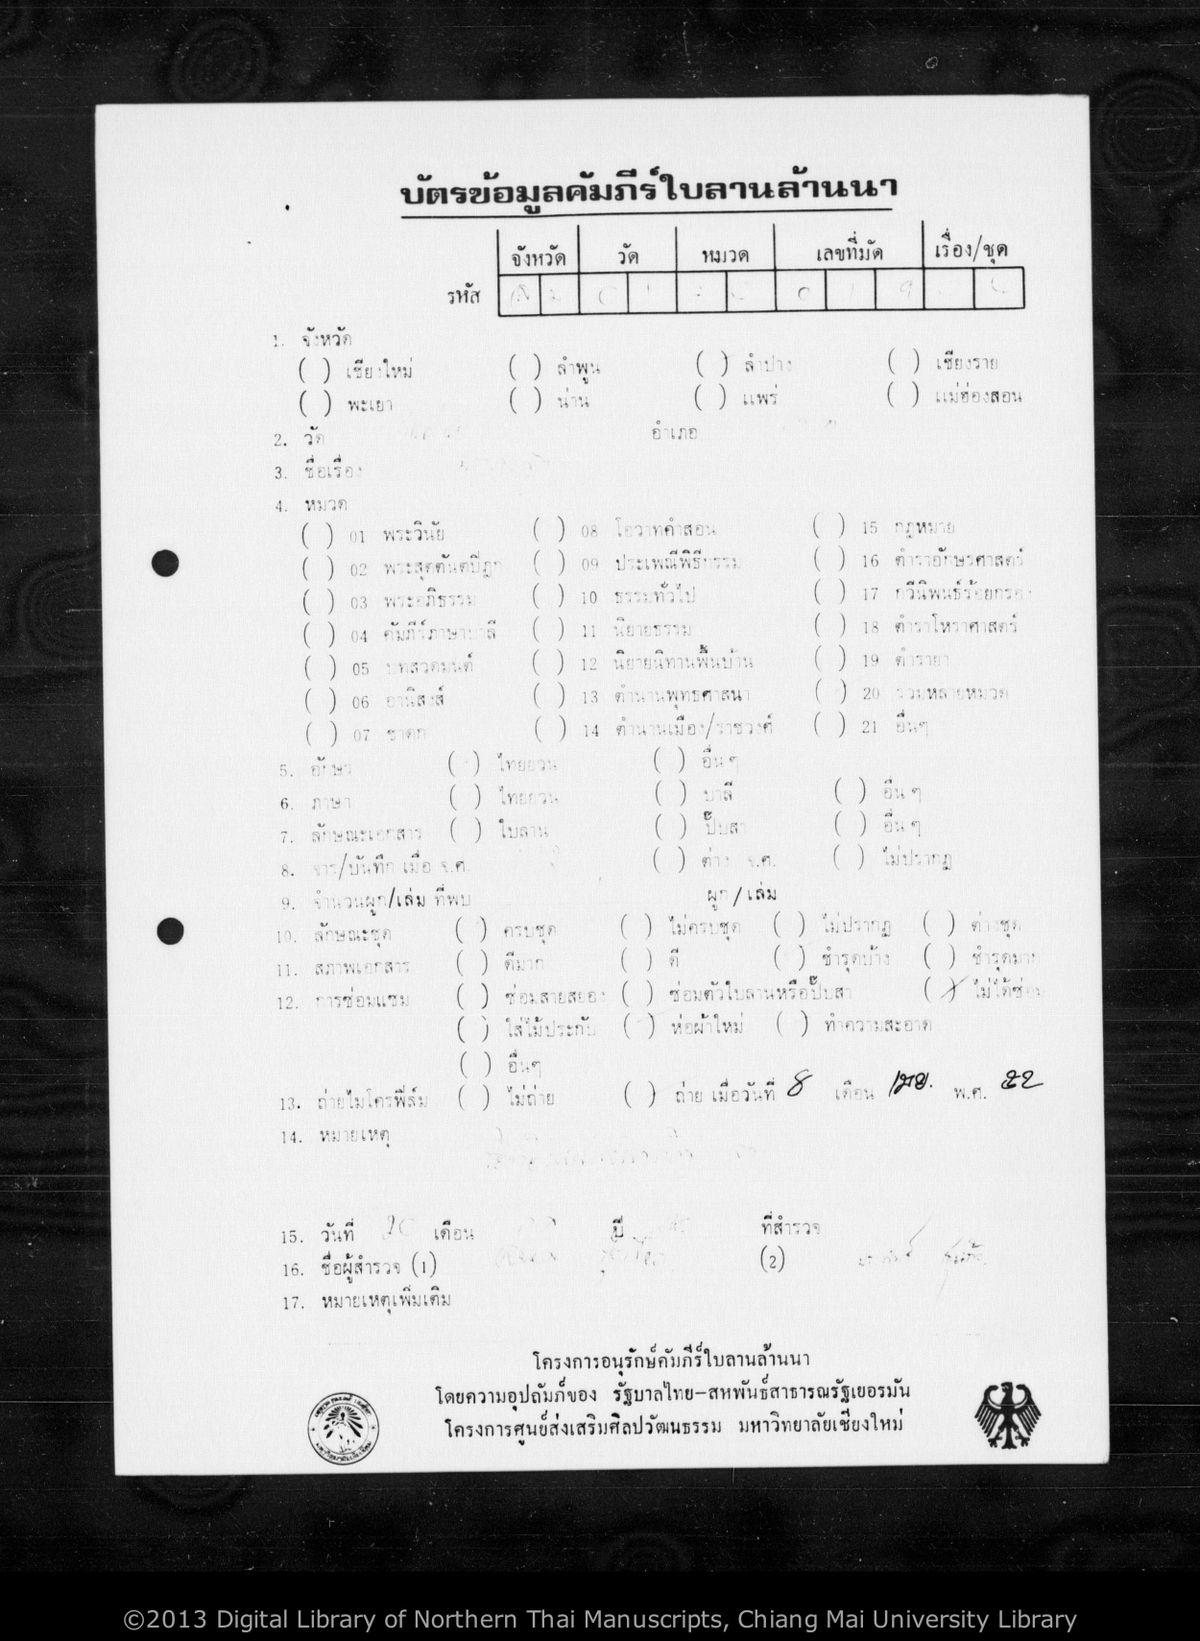 บัตรข้อมูลคัมภีร์ใบลานล้านนา
จังหวัด วัด หมวด เลขที่มัด เรื่อง/ชุด
รหัส
1. จังหวัด
( ) เชียงใหม่ ( ) ลำพูน ( ) ลำปาง ( ) เชียงราย
( ) พะเยา ( ) น่าน ( ) แพร่ ( ) แม่ฮ่องสอน
2. วัด อำเภอ
3. ชื่อเรื่อง
4. หมวด
( ) 01 พระวินัย ( ) 08 โอวาทคำสอน ( ) 15 กฎหมาย
( ) 02 พระสุตตันตปิฎก ( ) 09 ประเพณีพิธีกรรม ( ) 16 ตำราอักษรศาสตร์
( ) 03 พระอภิธรรม ( ) 10 ธรรมทั่วไป ( ) 17 กวีนิพนธ์ร้อยกรอง
( ) 04 คัมภีร์ภาษาบาลี ( ) 11 นิยายธรรม ( ) 18 ตำราโหราศาสตร์
( ) 05 บทสวดมนต์ ( ) 12 นิยายนิทานพื้นบ้าน ( ) 19 ตำรายา
( ) 06 อานิสงส์ ( ) 13 ตำนานพุทธศาสนา ( ) 20 รวมหลายหมวด
( ) 07 ชาดก ( ) 14 ตำนานเมือง/ราชวงศ์ ( ) 21 อื่นๆ
5. อักษร ( ) ไทยยวน ( ) อื่น ๆ
6. ภาษา ( ) ไทยยวน ( ) บาลี ( ) อื่น ๆ
7. ลักษณะเอกสาร ( ) ใบลาน ( ) ปั๊บสา ( ) อื่น ๆ
8. จาร/บันทึก เมื่อ จ.ศ. ( ) ต่าง จ.ศ. ( ) ไม่ปรากฏ
9. จำนวนผูก/เล่ม ที่พบ ผูก / เล่ม
10. ลักษณะชุด ( ) ครบชุด ( ) ไม่ครบชุด ( ) ไม่ปรากฏ ( ) ต่างชุด
11. สภาพเอกสาร ( ) ดีมาก ( ) ดี ( ) ชำรุดบ้าง ( ) ชำรุดมาก
12. การซ่อมแซม ( ) ซ่อมสายสยอง ( ) ซ่อมตัวใบลานหรือปั๊บสา (/) ไม่ได้ซ่อม
( ) ใส่ไม้ประกับ ( ) ห่อผ้าใหม่ ( ) ทำความสะอาด
( ) อื่นๆ
13. ถ่ายไมโครฟิล์ม ( ) ไม่ถ่าย ( ) ถ่าย เมื่อวันที่ 8 เดือน เมย. พ.ศ. ๕๒
14. หมายเหตุ
15. วันที่ 20 เดือน ปี ที่สำรวจ
16. ชื่อผู้สำรวจ (1) (2)
17. หมายเหตุเพิ่มเติม
โครงการอนุรักษ์คัมภีร์ใบลานล้านนา
โดยความอุปถัมภ์ของ รัฐบาลไทย-สหพันธ์สาธารณรัฐเยอรมัน
โครงการศูนย์ส่งเสริมศิลปวัฒนธรรม มหาวิทยาลัยเชียงใหม่
©2013 Digital Library of Northern Thai Manuscripts, Chiang Mai University Library